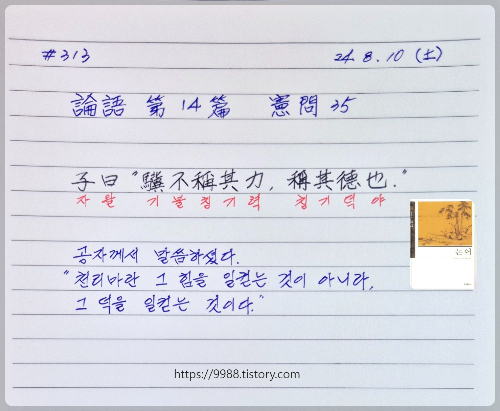 #313
24. 8. 10 (土)
論語 第 14 篇 憲問 35
子曰 "驥不稱其力, 稱其德也."
자 왈 기 불 칭 기 력 칭 기 덕 야
공자께서 말씀하셨다.
"천리마란 그 힘을 일컫는 것이 아니라,
그 덕을 일컫는 것이다."
논어
https://9988.tistory.com